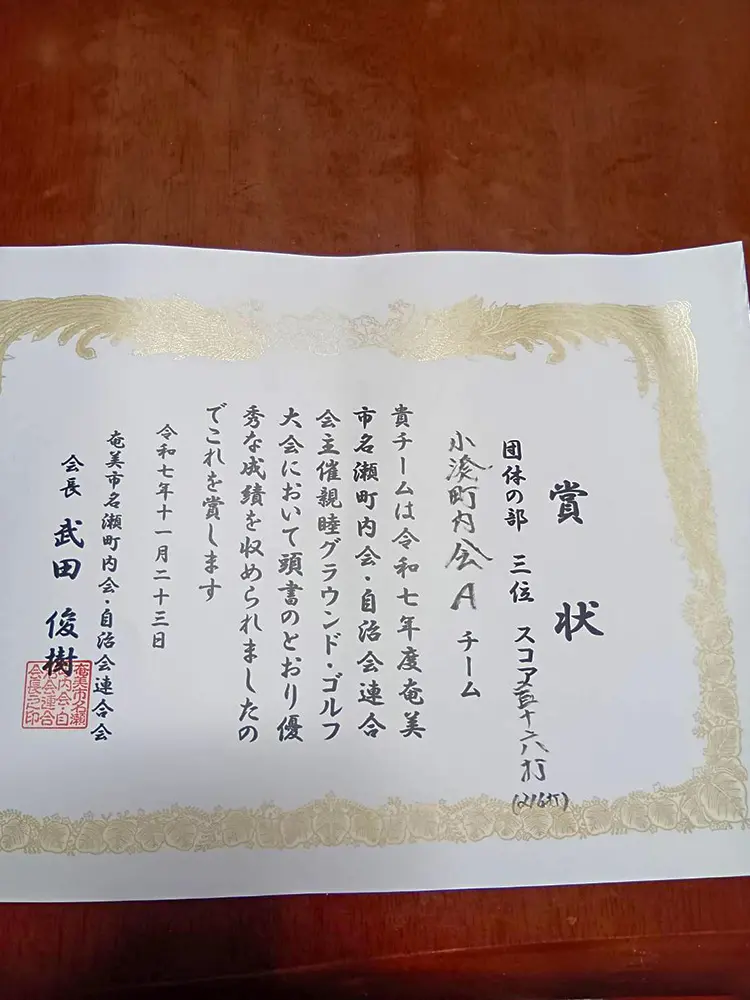 賞状
団体の部 三位 スコア二百十六打
(216打)
小湊町内会A チーム
貴チームは令和七年度奄美
市名瀬町内会・自治会連合
会主催親睦グラウンド・ゴルフ
大会において頭書のとおり優
秀な成績を収められましたの
でこれを賞します
令和七年十一月二十三日
奄美市名瀬町内会・自治会連合会
会長 武田 俊樹
奄美市名瀬
町内会・自
治会連合
会長之印